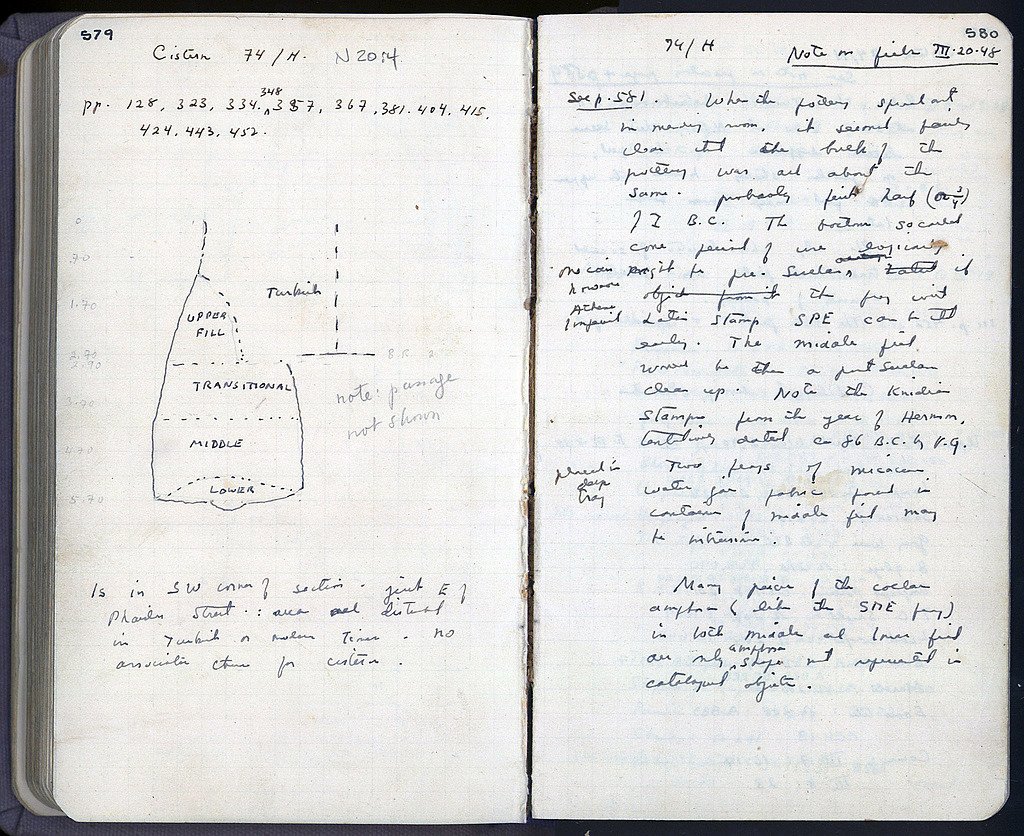 579
Cistern 74/H. N 20:4
pp. 128, 323, 334, 348, 357, 367, 381, 404, 415,
424, 443, 452.
0
.70
1.70
2.70
2.90
3.70
4.70
5.70
UPPER
FILL
Turkish
TRANSITIONAL
MIDDLE
LOWER
note: passage
not shown
Is in SW corner of section - just E of
Street : area and disturbed
in Turkish or modern times. no
for cistern.
580
74/H Note on fill III-20-48
See p. 581. When the pottery spread out
in room, it seemed fairly
clear that the bulk of the
pottery was all about the
same - probably first half (or 3/4)
of I B.C. The bottom so called
cone period of use
might be pre-Sullan, if
object from it the frag with
Latin Stamp SPE can be
early. The middle fill
would be then a post Sullan
clean up. Note the Knidian
Stamps from the year of Hermon,
tentatively dated ca 86 B.C. by V.G.
placed in
deep
tray
Two frags of micaceous
water jar fabric found in
container of middle fill may
be intrusion.
Many pieces of the
amphora (like the SPE frag)
in both middle and lower fill
are only amphora shape not represented in
catalogued objects.